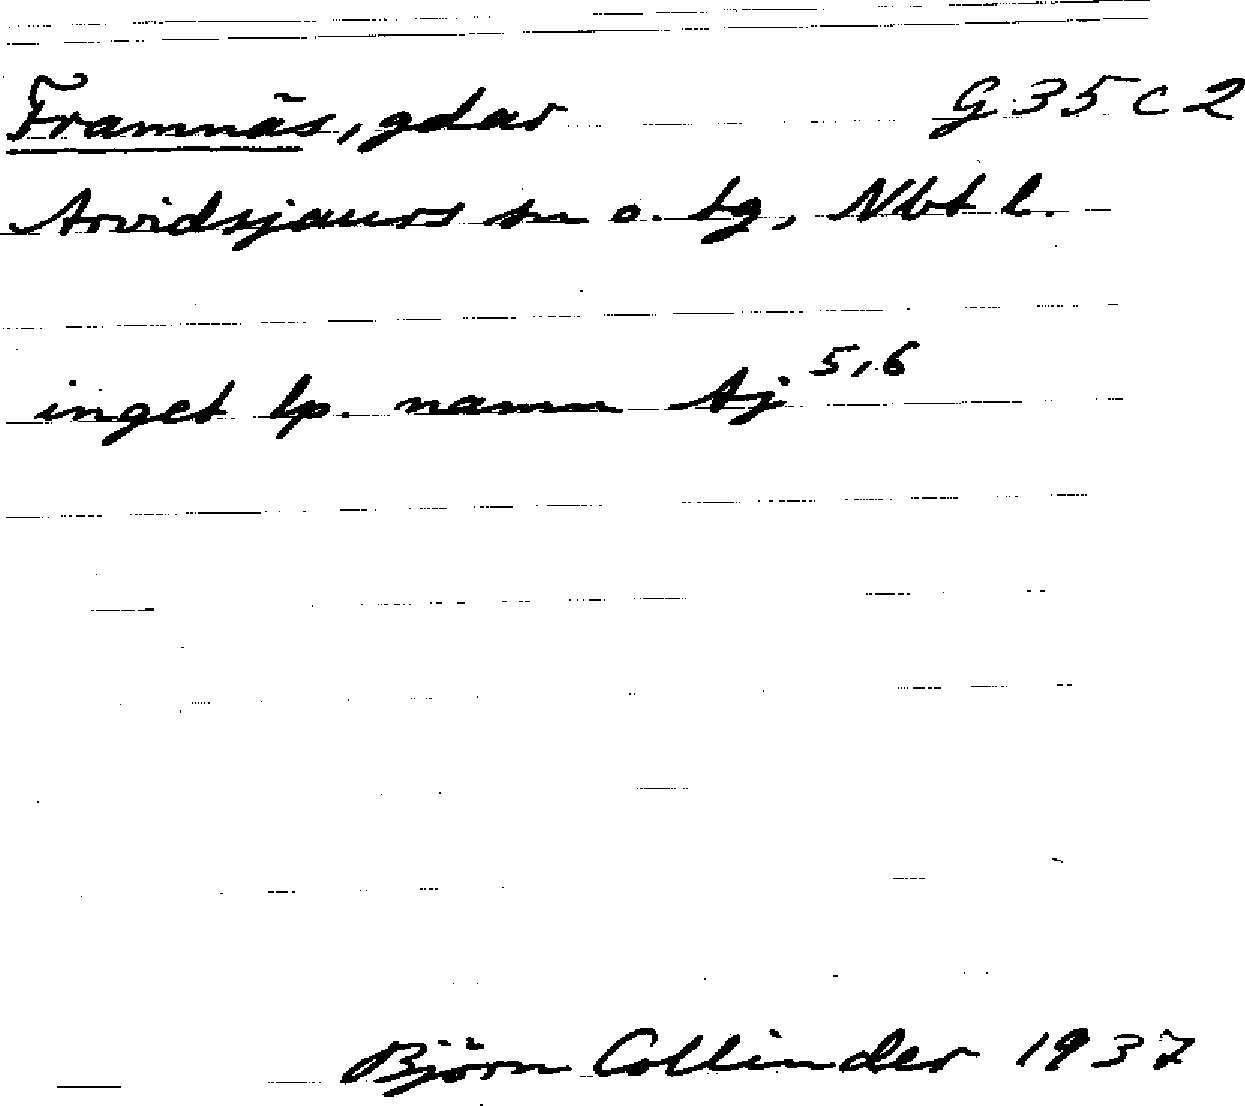 Framnäs, gdar G 35 c 2
Arvidsjaurs sn o. tg, Nbt l.
inget lp. namn Aj 5,6
Björn Collinder 1937